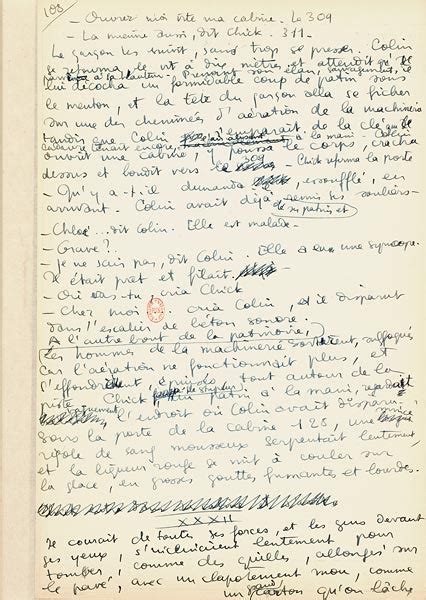 108
— Ouvrez moi vite ma cabine. Le 309
— La mienne aussi, dit Chick. 311 —
Le garçon les suivit, sans trop se presser. Colin
se retourna, le vit à dix mètres et attendit qu'il
à sa hauteur. Prenant son élan, sauvagement, il
lui décocha un formidable coup de patin sous
le menton, et la tête du garçon alla se ficher
sur une des cheminées d'aération de la machinerie
tandis que Colin s'emparait de la clé que le
cadavre tenait encore à la main. Colin
ouvrit une cabine, y poussa le corps, cracha
dessus et bondit vers le 309 — Chick referma la porte
— Qu'y a-t-il demanda , essoufflé, en
arrivant. — Colin avait déjà remis ses souliers —
ôté ses patins et
— Chloé... dit Colin. Elle est malade —
— Grave ?
— Je ne sais pas, dit Colin. Elle a eu une syncope.
Il était prêt et filait.
— Où vas-tu, cria Chick
— Chez moi . cria Colin, et il disparut
dans l'escalier de béton sonore.
A l'autre bout de la patinoire,
les hommes de la machinerie sortaient, suffoqués
car l'aération ne fonctionnait plus, et
s'effondraient, épuisés, tout autour de la
piste Chick de stupeur, un patin à la main, regardait
vaguement l'endroit où Colin avait disparu.
Sous la porte de la cabine 128, une mince
rigole de sang mousseux serpentait lentement,
et la liqueur rouge se mit à couler sur
la glace, en grosses gouttes fumantes et lourdes.
XXXII
Il courait de toutes ses forces, et les gens devant
ses yeux, s'inclinaient lentement pour
tomber, comme des quilles, allongés sur
le pavé, avec un clapotement mou, comme
un grand carton qu'on lâche